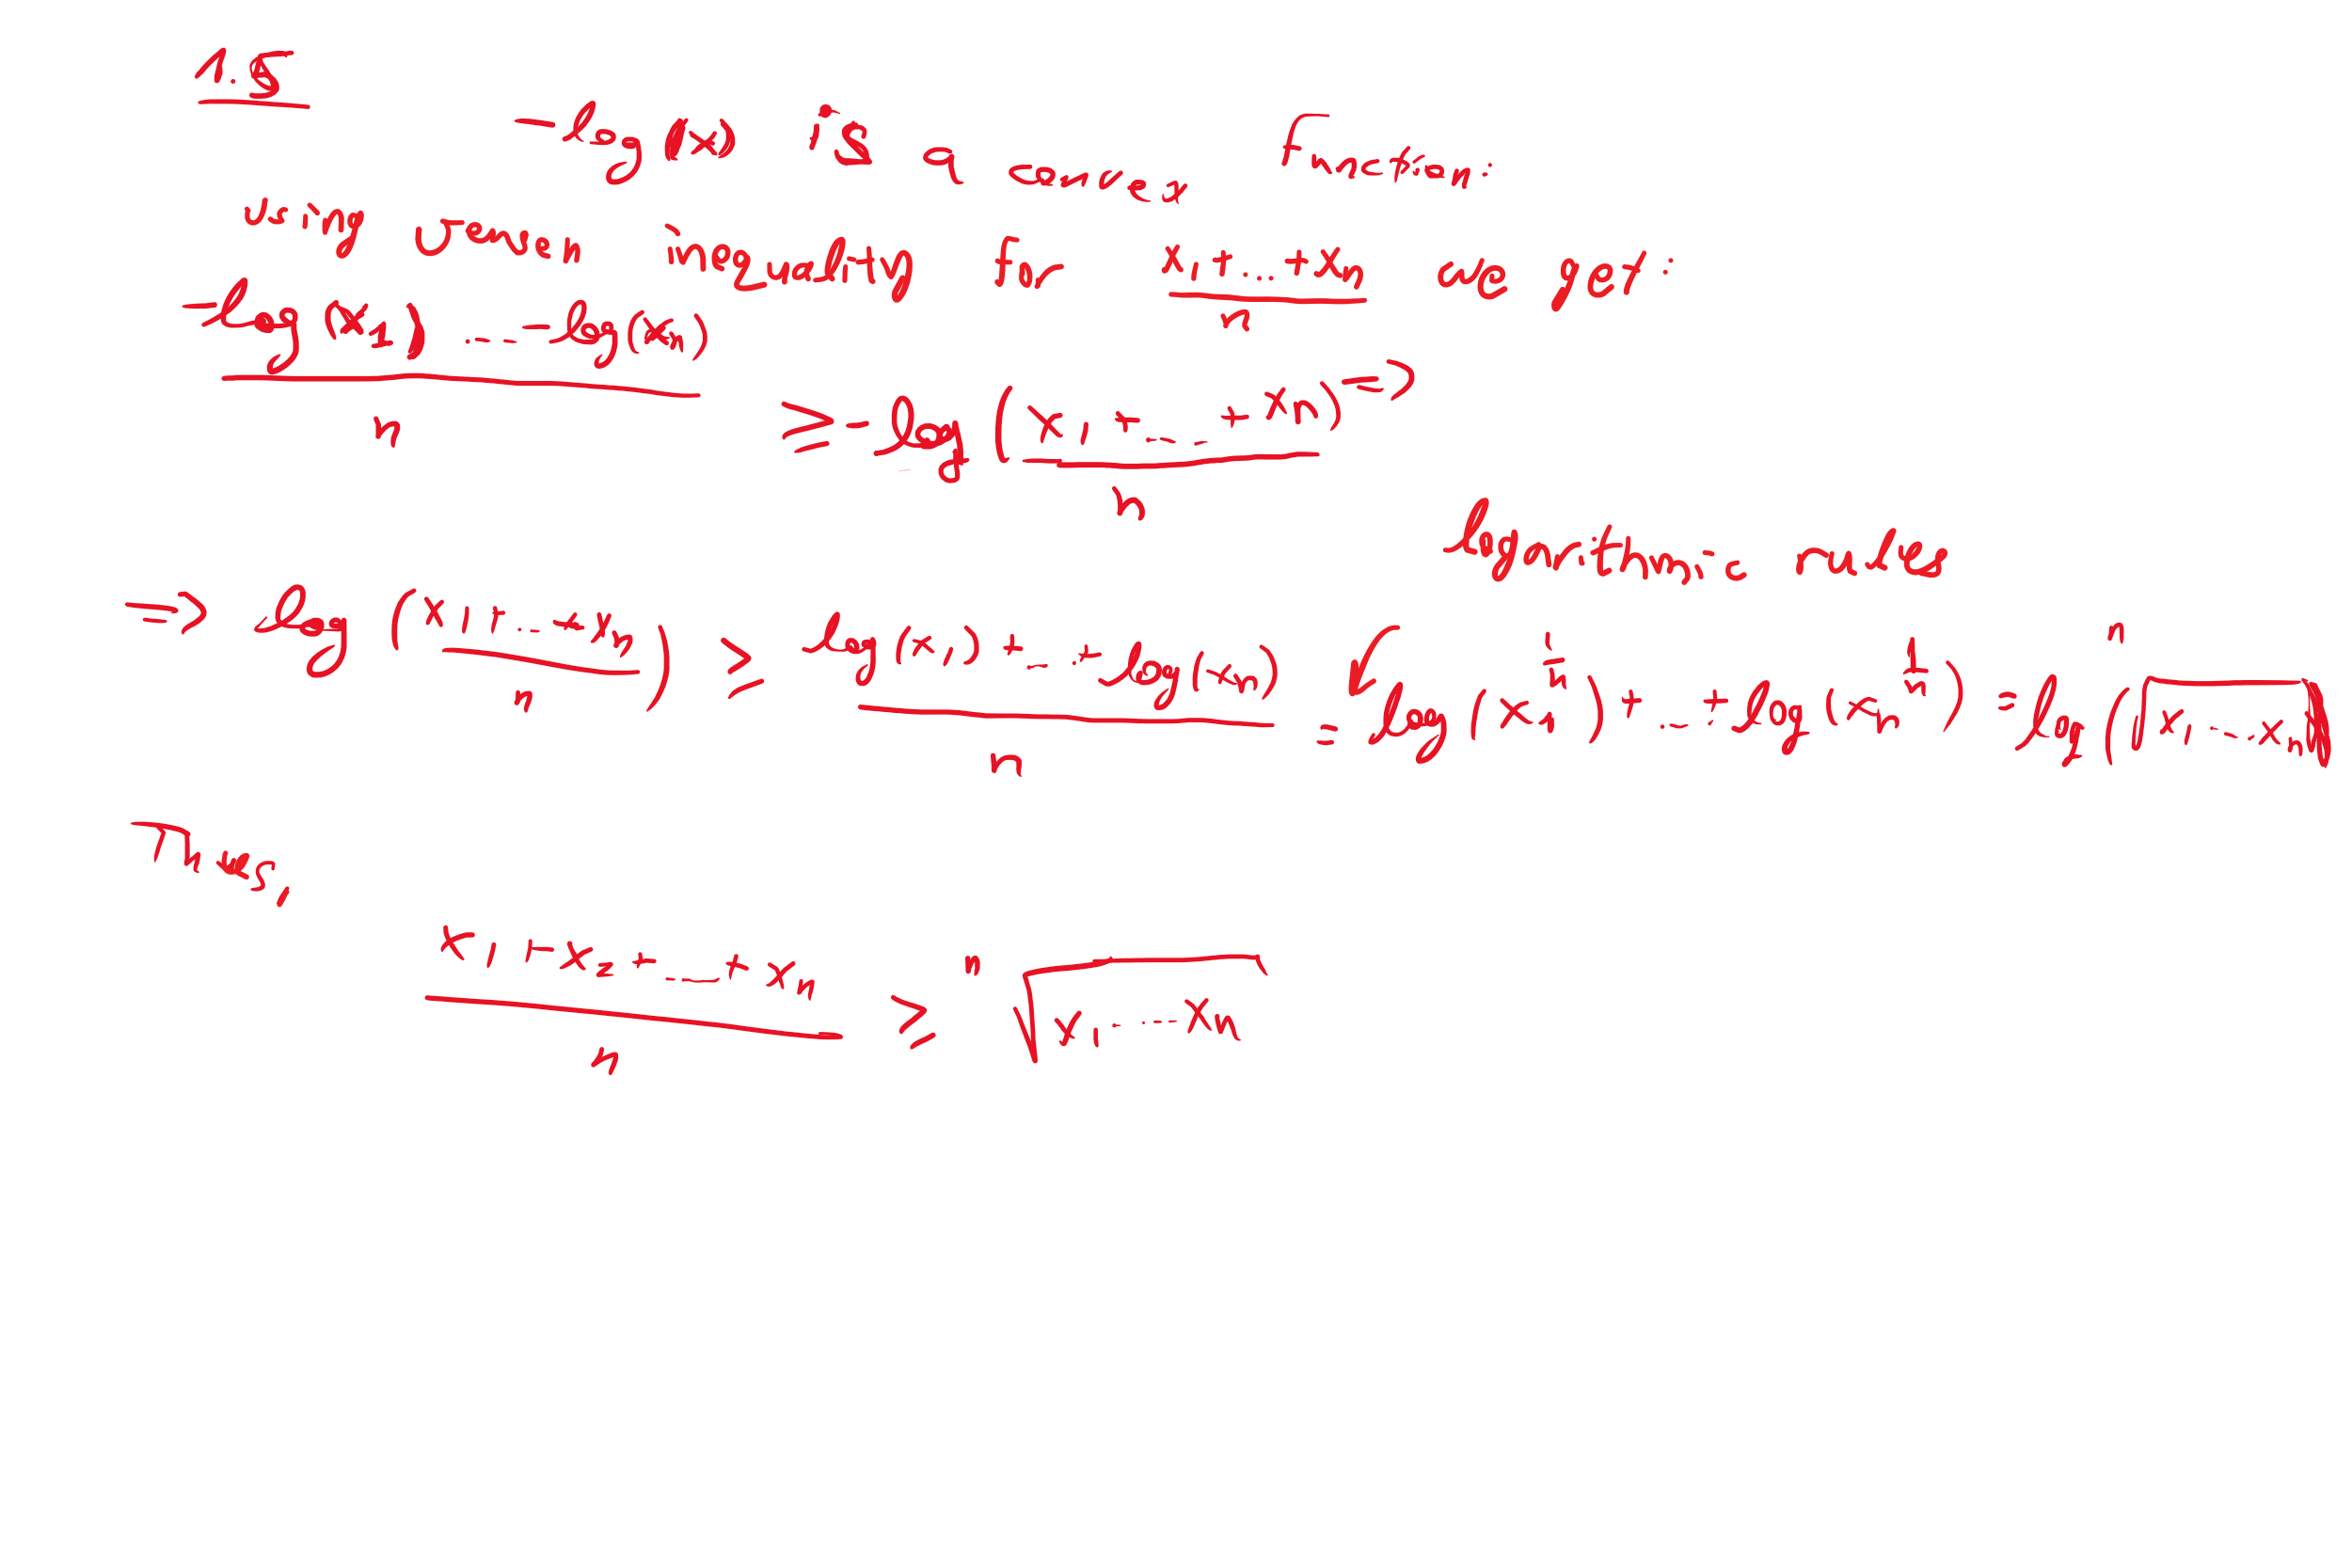 1.5
-log(x) is a convex function:
using Jensen inequality for (x₁+...+xₙ)/n we get:
(-log(x₁)...-log(xₙ))/n ≥ -log((x₁+...+xₙ)/n) =>
logarithmic rules
=> log((x₁+...+xₙ)/n) ≥ (log(x₁)+...+log(xₙ))/n = log(x₁^(1/n))+...+log(xₙ^(1/n)) = log(ⁿ√(x₁...xₙ))
Thus,
(x₁+x₂+...+xₙ)/n ≥ ⁿ√(x₁...xₙ)